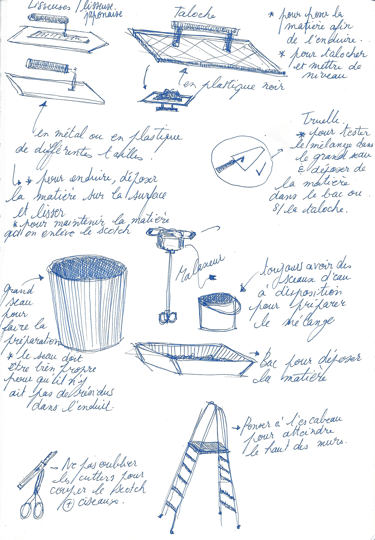 Lisseuses / lisseuse
japonaise
Taloche
* pour poser la
matière afin
de l'enduire.
* pour talocher
et mettre de
niveau
en plastique noir
en métal ou en plastique
de différentes tailles.
* pour enduire, déposer
la matière sur la surface
et lisser
* pour maintenir la matière
qd on enlève le scotch
Truelle
* pour tester
le mélange dans
le grand seau
& déposer de
la matière
dans le bac ou
s/ la taloche.
Malaxeur
grand
seau
pour
faire la
préparation
* le seau doit
être très propre
pour qu'il n'y
ait pas de résidus
dans l'enduit.
toujours avoir des
seaux d'eau
à disposition
pour préparer
le mélange
Bac pour déposer
la matière
Ne pas oublier
les cutters pour
couper le scotch
+ ciseaux.
Penser à l'escabeau
pour atteindre
le haut des murs.